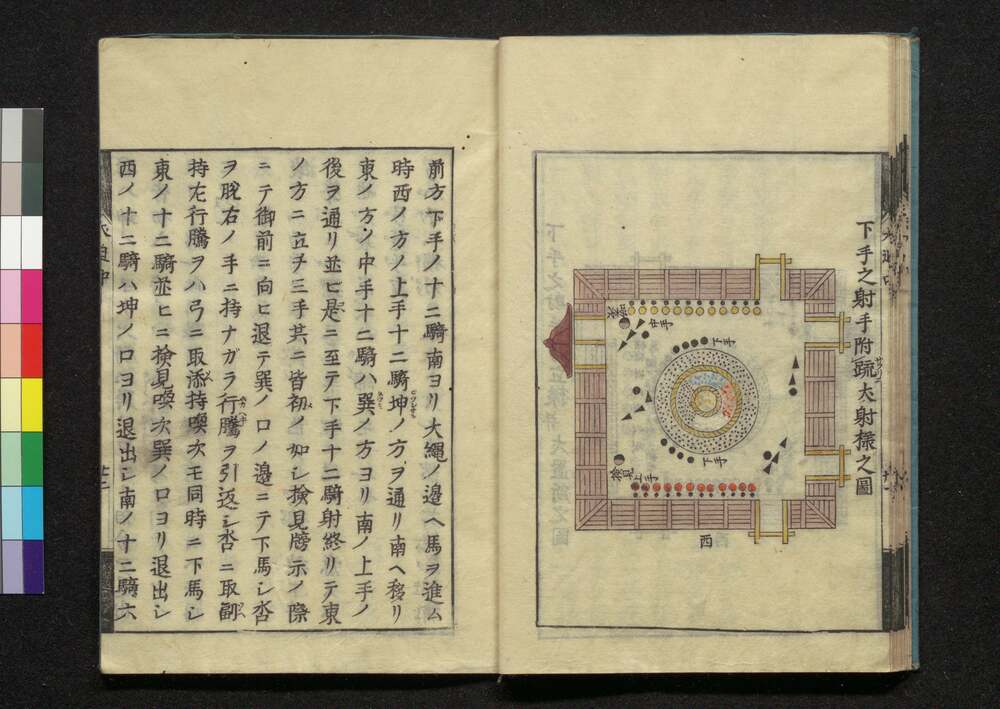 下手之射手附疏犬射様之圖
中手
下手
下手
検見
上手
西
前方下手ノ十二騎南ヨリ大繩ノ邉ヘ馬ヲ進ム
時西ノ方ノ上手十二騎坤ノ方ヲ通リ南ヘ移リ
東ノ方ノ中手十二騎ハ巽ノ方ヨリ南ノ上手ノ
後ヲ通リ並ヒ是ニ至テ下手十二騎射終リテ東
ノ方ニ立チ三手共ニ皆初ノ如シ検見牓示ノ際
ニテ御前ニ向ヒ退テ巽ノ口ノ邉ニテ下馬シ沓
ヲ脱右ノ手ニ持ナガラ行騰ヲ引返シ沓ニ取副
持左行騰ヲハ弓ニ取添持喚次モ同時ニ下馬シ
東ノ十二騎並ヒニ検見喚次巽ノ口ヨリ退出シ
西ノ十二騎ハ坤ノ口ヨリ退出シ南ノ十二騎六